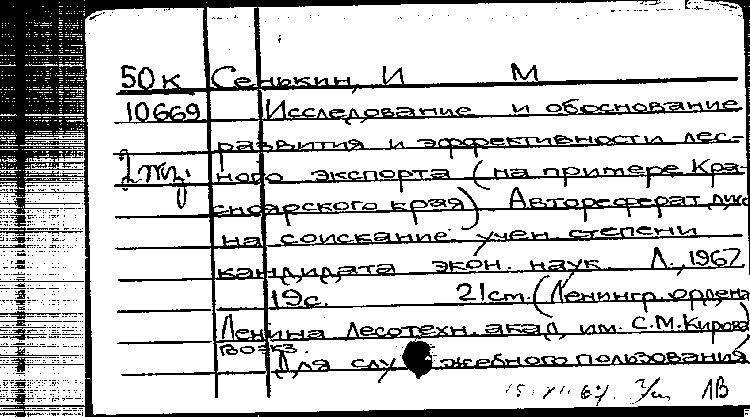 50к Сенькин, И М
10669 Исследование и обоснование
развития и эффективности лес-
2 экз. ного экспорта (на примере Кра-
сноярского края) Автореферат дисс
на соискание учен степени
кандидата экон. наук Л., 1967
19с. 21см. (Ленингр. ордена
Ленина Лесотехн. акад. им. С.М.Кирова)
Для служебного пользования
ЛВ